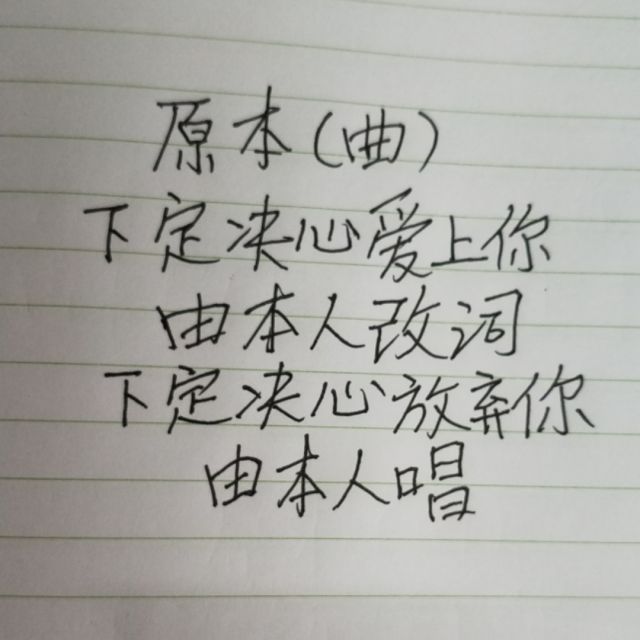 原本(曲)
下定决心爱上你
由本人改词
下定决心放弃你
由本人唱